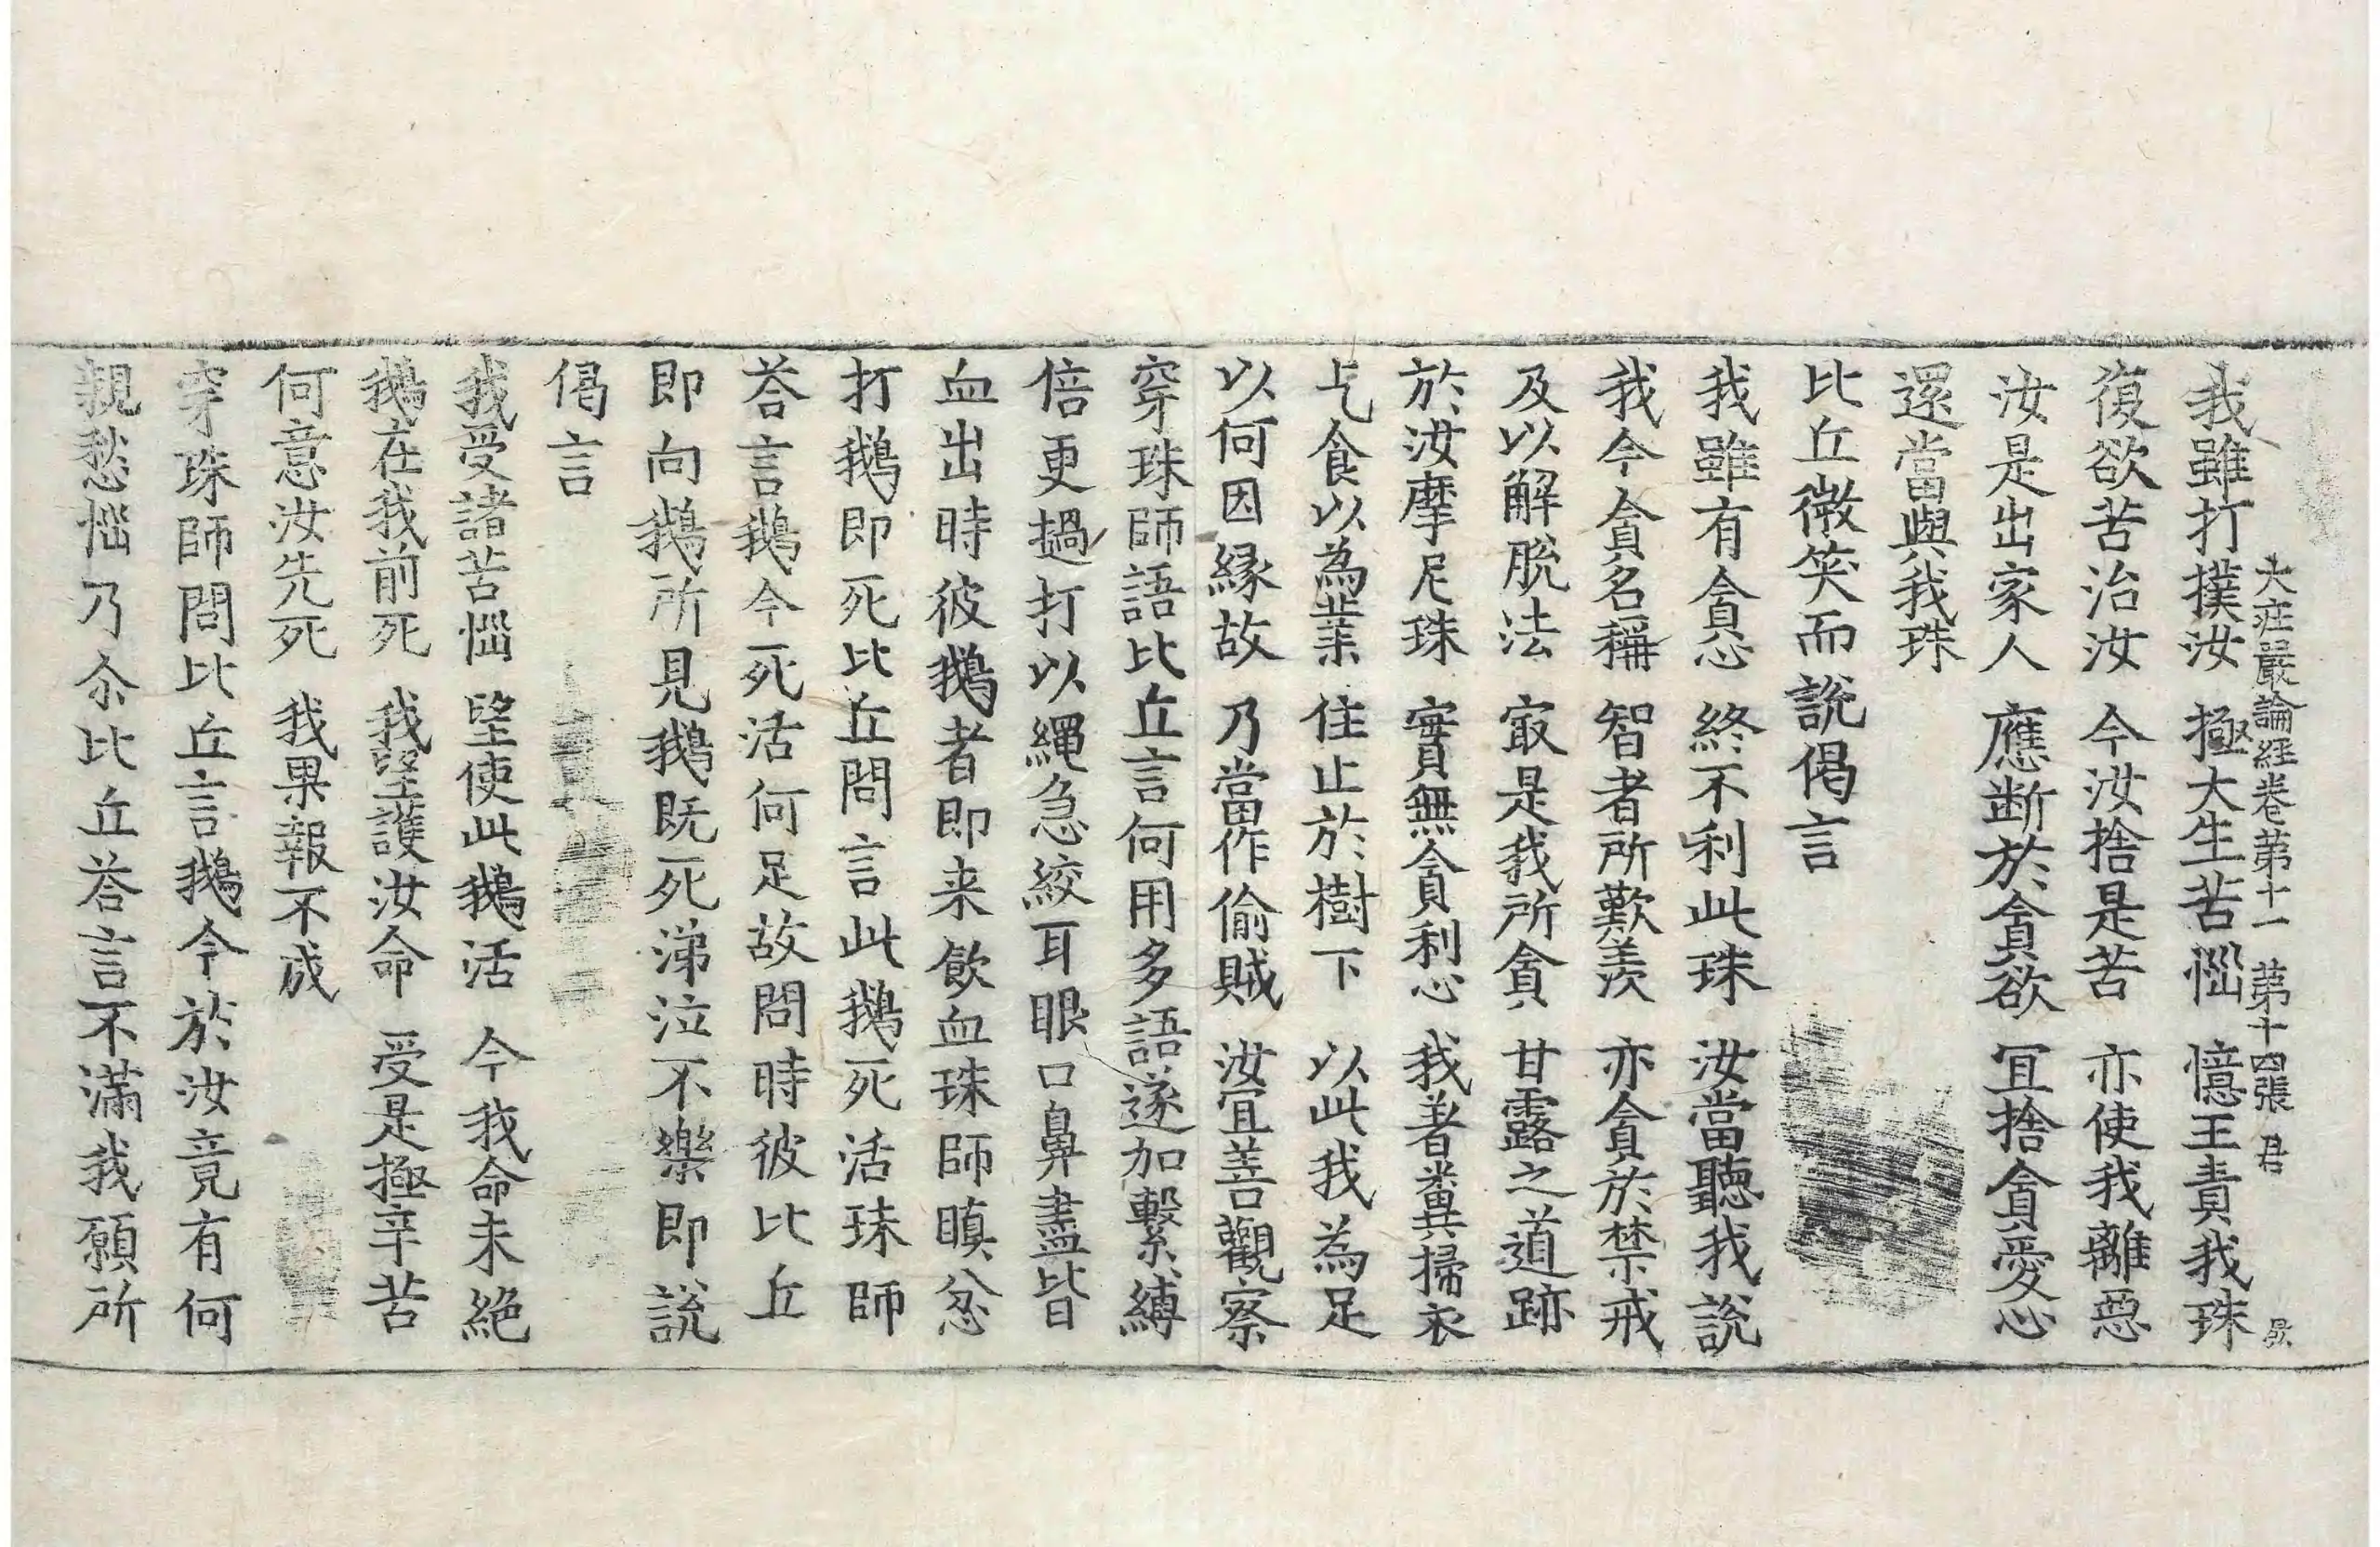 大庄嚴論經卷第十一 第十四張 君
我雖打撲汝 極大生苦惱 憶王責我珠
復欲苦治汝 今汝捨是苦 亦使我離惡
汝是出家人 應斷於貪欲 冝捨貪愛心
還當與我珠
比丘微笑而說偈言
我雖有貪心 終不利此珠 汝當聽我說
我今貪名稱 智者所歎羨 亦貪於禁戒
及以解脫法 㝡是我所貪 甘露之道跡
於汝摩尼珠 實無貪利心 我著糞掃衣
乞食以為業 住止於樹下 以此我為足
以何因緣故 乃當作偷賊 汝冝善觀察
穿珠師語比丘言何用多語遂加繫縛
倍更撾打以繩急絞耳眼口鼻盡皆
血出時彼鵝者即来飲血珠師瞋忿
打鵝即死比丘問言此鵝死活珠師
荅言鵝今死活何足故問時彼比丘
即向鵝所見鵝既死涕泣不樂即說
偈言
我受諸苦惱 望使此鵝活 今我命未絕
鵝在我前死 我望護汝命 受是極辛苦
何意汝先死 我果報不成
穿珠師問比丘言鵝今於汝竟有何
親愁惱乃尒比丘荅言不滿我願所